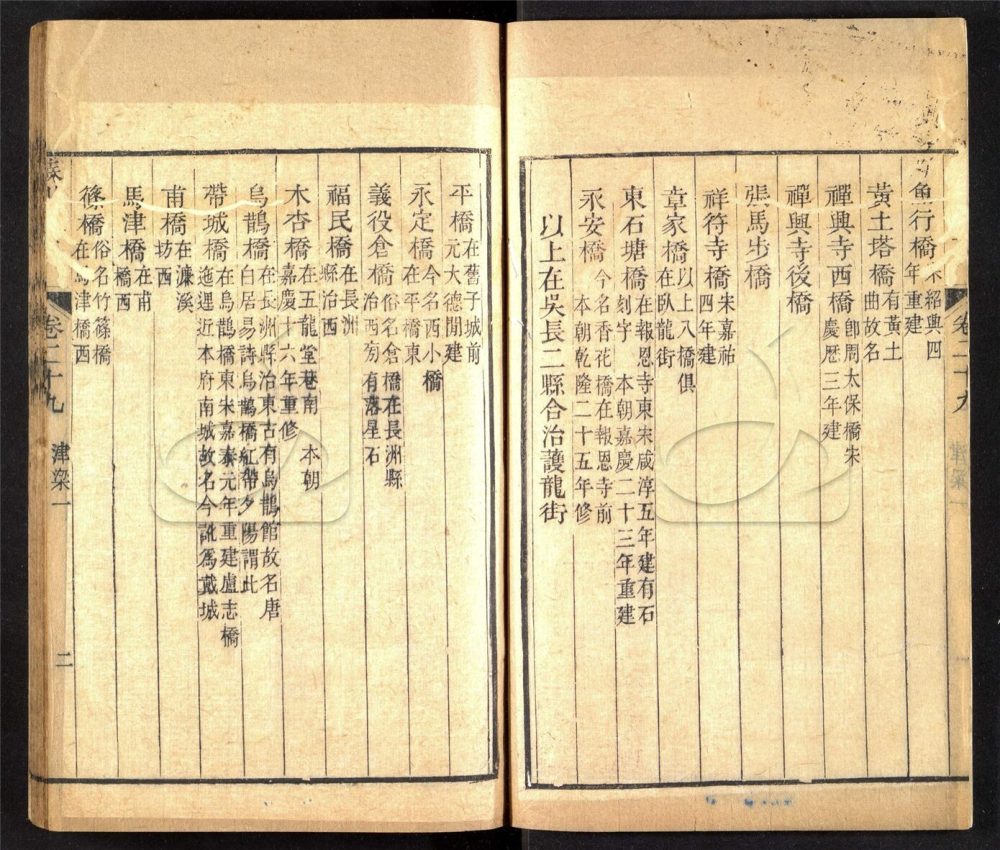 魚行橋宋紹興四年重建
黃土塔橋有黃土曲故名
禪興寺西橋卽周太保橋宋慶厯三年建
禪興寺後橋
張馬步橋
祥符寺橋宋嘉祐四年建
章家橋以上八橋俱在臥龍街
東石塘橋在報恩寺東宋咸淳五年建有石刻字 本朝嘉慶二十三年重建
永安橋今名香花橋在報恩寺前 本朝乾隆二十五年修
以上在吳長二縣合治護龍街
平橋在舊子城前元大德閒建
永定橋今名西小橋在平橋東
義役倉橋俗名倉橋在長洲縣治西旁有落星石
福民橋在長洲縣治西
木杏橋在五龍堂巷南 本朝嘉慶十六年重修
烏鵲橋在長洲縣治東古有烏鵲館故名唐白居易詩烏鵲橋紅帶夕陽謂此
帶城橋在烏鵲橋東宋嘉泰元年重建盧志橋迤邐近本府南城故名今訛爲戴城
甫橋在濂溪坊西
馬津橋在甫橋西
篠橋俗名竹篠橋在馬津橋西
卷二十九 津梁一 二